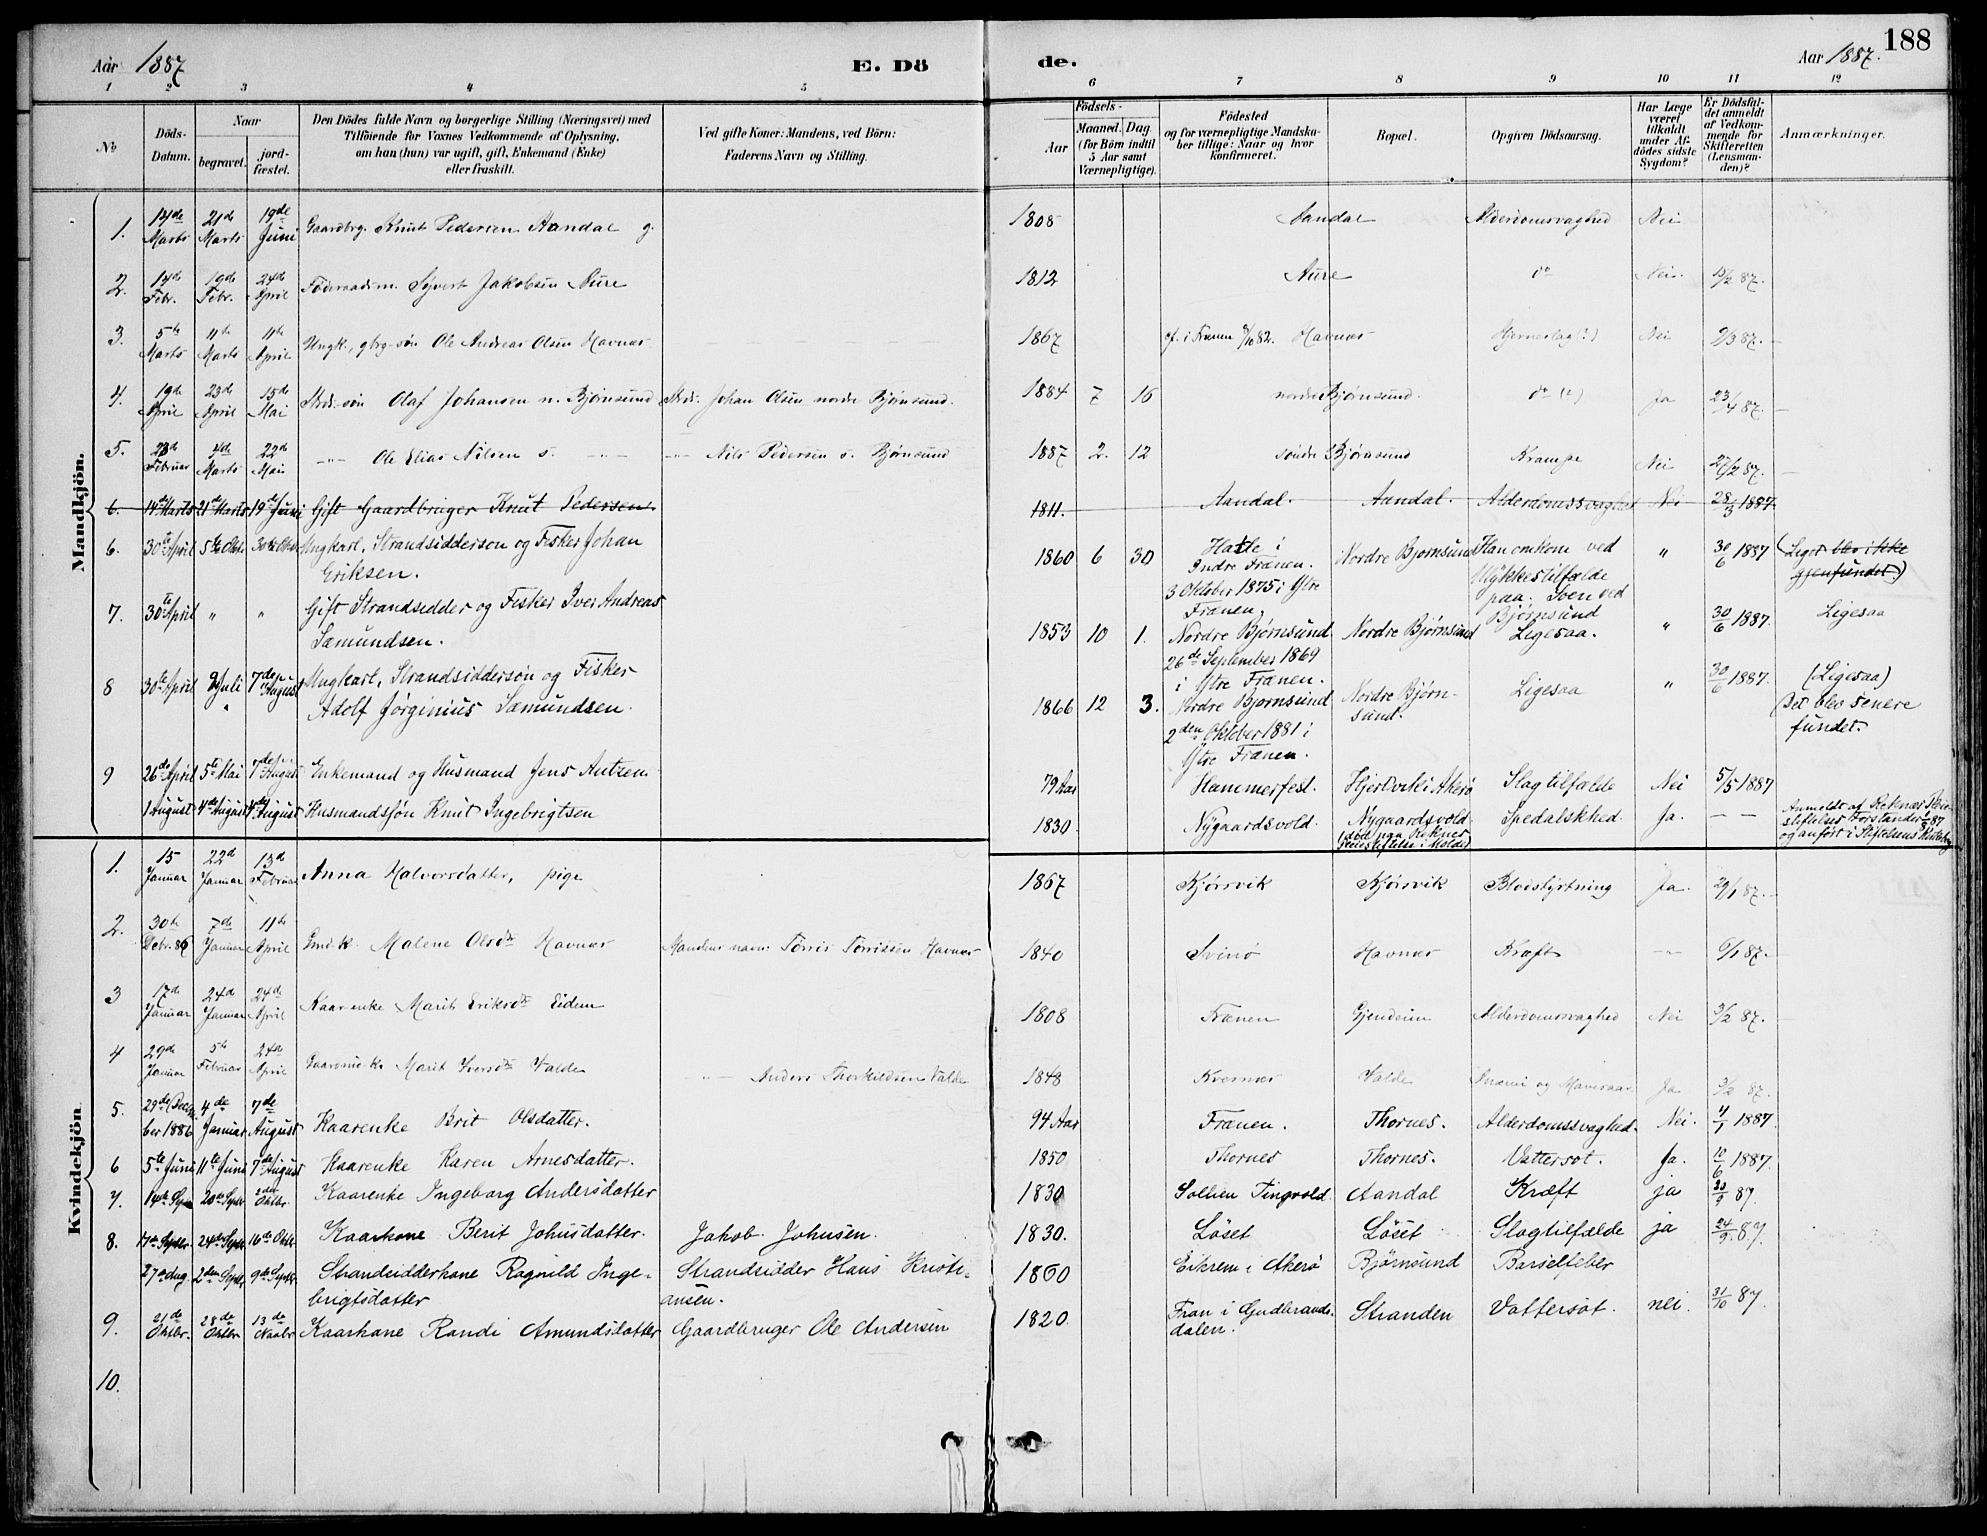 188
Aar 1887
E. Dö
de.
Aar 1887.
1 2 3 4 5 6 7 8 9 10 11 12
No
Döds-
Datum.
Naar
begravet.
jord-
fæstet.
Den Dödes fulde Navn og borgerlige Stilling (Næringsvei) med
Tilföiende for Voxnes Vedkommende af Oplysning,
om han (hun) var ugift, gift, Enkemand (Enke)
eller fraskilt.
Ved gifte Koner: Mandens, ved Börn:
Faderens Navn og Stilling.
Födsels-
Aar
Maaned.
Dag
(for Börn indtil
5 Aar samt
Værnepligtige).
Födested
og for værnepligtige Mandska-
ber tillige: Naar og hvor
konfirmeret.
Bopæl.
Opgiven Dödsaarsag.
Har Læge
været
tilkaldt
under Af-
dödes sidste
Sygdom?
Er Dödsfal-
det anmeldt
af Vedkom-
mende for
Skifteretten
(Lensman-
den)?
Anmærkninger.
Mandkjön.
1. Marts 21de Marts 19de Juni Gaardbrg. Knut Pedersen Aandal g. 1808 Aandal Alderdomsvaghed Nei
2. Febr. 19de Febr. 24de April Föderaadsm. Syvert Jakobsen Aure 1812 Aure do Nei. /2 87.
3. 5te Marts 11te Marts 11te April Ungk., gbrg. søn Ole Andreas Olsen Havnæs 1867 cf. i Frænen /10 82. Havnæs Hjerneslag (?) Nei 9/3 87.
4. 19de April 23de April 15de Mai Strds. søn Olaf Johansen n. Bjørnsund Strds. Johan Olsen nordre Bjørnsund. 1884 7 16 nordre Bjørnsund. do (?) Ja 23/4 87.
5. 23de Februar 4de Marts 22de Mai —"— Ole Elias Nilsen s. —"— —"— Nils Pedersen s. Bjørnsund 1887 2. 12 søndre Bjørnsund Krampe Nei 27/2 87.
6. 14de Marts 21de Marts 19de Juni Gift Gaardbruger Knut Pedersen. 1811. Aandal. Aandal. Alderdomssvaghed Nei 28/3 1887
6. 30te April 5te Oktbr. 30te Oktbr. Ungkarl, Strandsidderson og Fisker Johan
Eriksen.
1860 6 30 Hatle i
Indre Frænen.
3 Oktober 1875 i Ytre
Frænen.
Nordre Bjørnsund Han omkom ved
Ulykkestilfælde
paa Sven ved
Bjørnsund
" 30/6 1887 (Liget blev ikke
gjenfundet.)
7. 30te April " " Gift Strandsidder og Fisker Iver Andreas
Sæmundsen.
1853 10 1. Nordre Bjørnsund
26de September 1869
i Ytre Frænen.
Nordre Bjørnsund Ligesaa. " 30/6 1887. Ligesaa
8 30te April 9 Juli 7de August Ungkarl, Strandsiddersøn og Fisker
Adolf Jørginius Sæmundsen.
1866 12 3. Nordre Bjørnsund
2den Oktober 1881 i
Ytre Frænen.
Nordre Bjørn-
sund.
Ligesaa " 30/6 1887. (Ligesaa)
Det blev senere
fundet.
9 26de April 5te Mai 7de August Enkemand og Husmand Jens Antzen 79 Aar Hammerfest. Hjertvik i Akerø Slagtilfælde Nei 5/5 1887
1 August 4de August 4de August Husmandssøn Knut Ingebrigtsen 1830 Nygaardsvold. Nygaardsvold.
(død paa Reknes
Pleiestiftelse i Molde)
Spedalskhed. Ja. — — Anmeldt af Reknæs Pleie-
stiftelses Forstander 87
og anført i Stiftelsens Kirkebog
Kvindekjön
1. 15 Januar 22d Januar 13d Februar Anna Halvorsdatter, pige 1867 Kjørsvik Kjørsvik Blodstyrtning Ja. 29/1 87.
2. 30te Decbr. 86 7de Januar 11te April Gmd.k. Malene Olsdtr Havnæs Mandens navn: Tørris Tørrissen Havnæs 1840 Svinø Havnæs Kræft —"— 6/1 87.
3 17de Januar 24de Januar 24de April Kaarenke Marit Eriksdtr Eidem 1808 Frænen Gjendem Alderdomssvaghed Nei /2 87.
4 29de Januar 5te Februar 24de April Marit Iversdtr Valde —"— Anders Thorkildsen Valde 1848 Kvernæs Valde og Mavesaar Ja /2 87.
5. 29de Decem-
ber 1886 4de Januar 7de August Kaarenke Brit Olsdatter. 94 Aar Frænen. Thornes. Alderdomssvaghed. Nei. 4/1 1887
6 5te Juni 11te Juni 7de August Kaarenke Karen Arnesdatter. 1850 Thornes Thornes. Vattersot. Ja. 10/6 1887.
7. 14de Sept 20de Septr 2den Oktbr. Kaarenke Ingeborg Andersdatter 1830 Sollien Tingvold Aandal Kræft ja 20/9 87.
8. 17de Septbr. 24de Septr. 16de Oktbr. Kaarkone Berit Johnsdatter. Jakob Johnsen. 1830. Løset Løset Slagtilfælde ja 24/9 87.
27 Aug. 2den Septr. 9de Septr. Strandsidderkone Ragnild Inge-
brigtsdatter
Strandsidder Hans Kristi-
ansen.
1860 Eikrem i Akerø Bjørnsund Barselfeber
9. 21de Oktbr. 28de Oktbr 13de Novbr Kaarkone Randi Amundsdatter Gaardbruger Ole Andersen 1820. Fron i Gudbrands-
dalen.
Stranden Vattersot. nei. 31/10 87.
10.